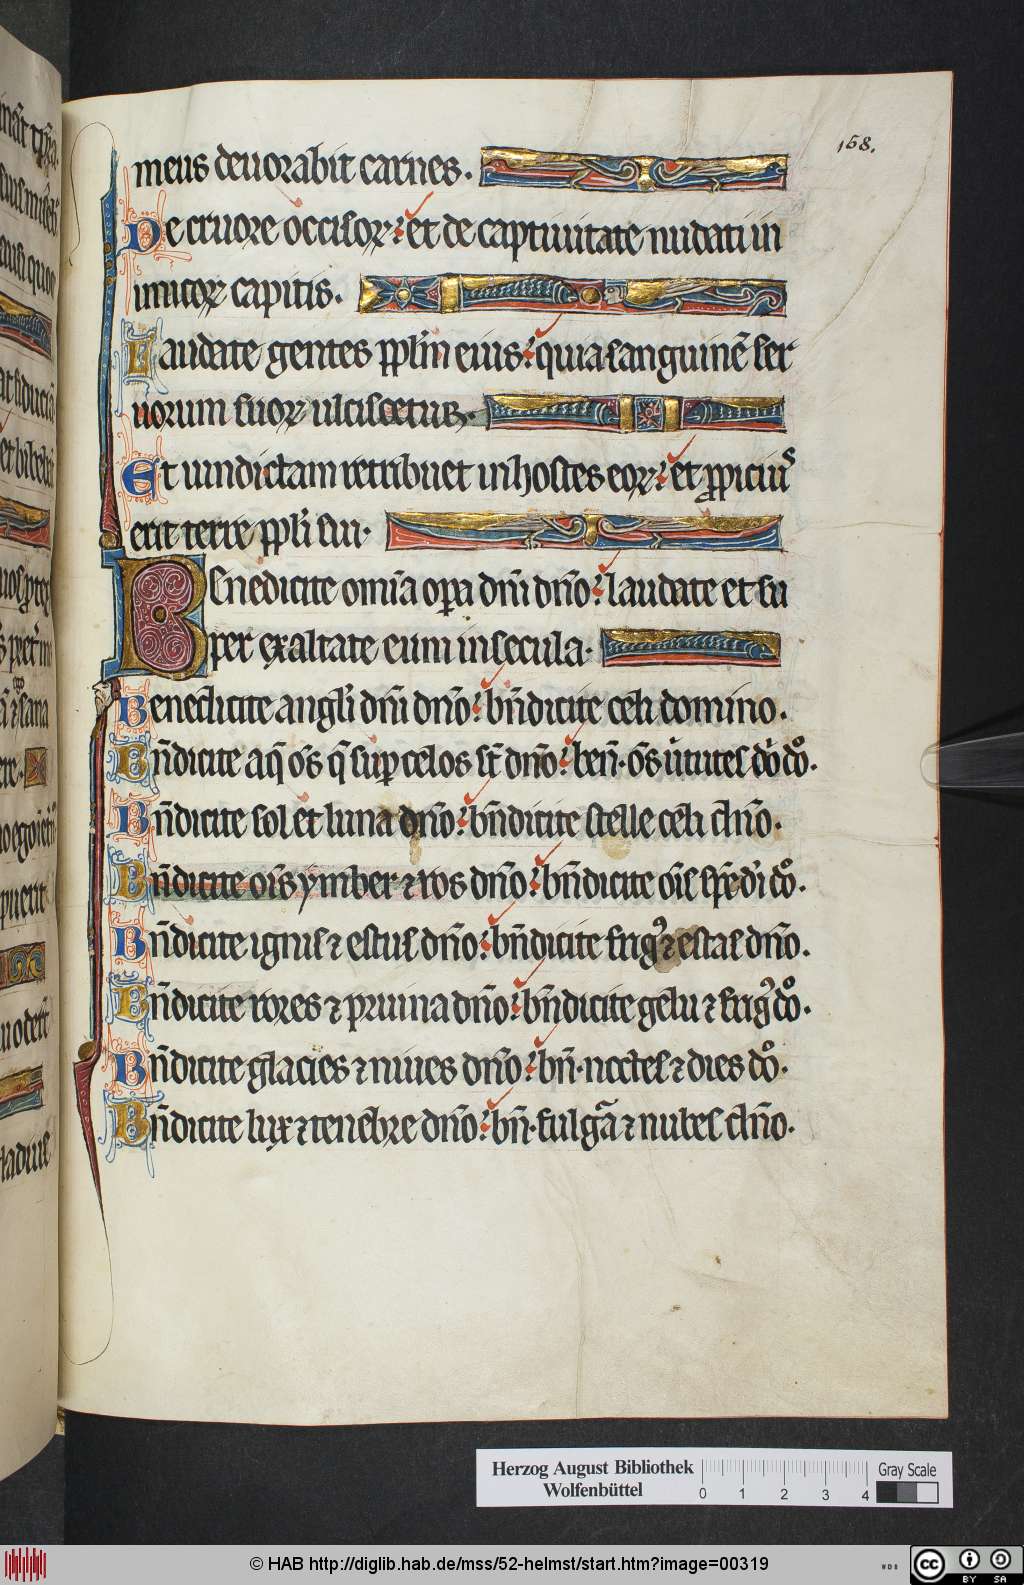 158.
meus deuorabit carnes.
De cruore occisoꝝ: et de captiuitate nudati in
imicoꝝ capitis.
Laudate gentes ppl̄m eius: quia sanguinē ser
uorum suoꝝ ulciscetur.
Et uindictam retribuet in hostes eoꝝ: et ꝓpiciuˢ
erit terre ppl̄i sui.
Benedicite om̄ia oꝑa dn̄i dn̄o: laudate et su
per exaltate eum in secula.
Benedicite angl̄i dn̄i dn̄o: bn̄dicite celi domino.
Bn̄dicite aq̄ om̄s q̄ suꝑ celos st̄ dn̄o: ben̄. om̄s u̇tutes dn̄i dn̊o.
Bn̄dicite sol et luna dn̄o: bn̄dicite stelle celi dn̄o.
Bn̄dicite om̄is ymber ⁊ ros dn̄o: bn̄dicite om̄s sp̄s dı̇ dn̊o.
Bn̄dicite ignis ⁊ estus dn̄o: bn̄dicite frigꝰ ⁊ estas dn̄o.
Bn̄dicite rores ⁊ pruina dn̄o: bn̄dicite gelu ⁊ frigꝰ dn̊o.
Bn̄dicite glacies ⁊ niues dn̄o: bn̄. noctes ⁊ dies dn̊o.
Bn̄dicite lux ⁊ tenebre dn̄o: bn̄. fulgᷓa ⁊ nubes dn̄o.
Herzog August Bibliothek
Wolfenbüttel
0 1 2 3 4
Gray Scale
© HAB http://diglib.hab.de/mss/52-helmst/start.htm?image=00319
WDB
cc BY SA